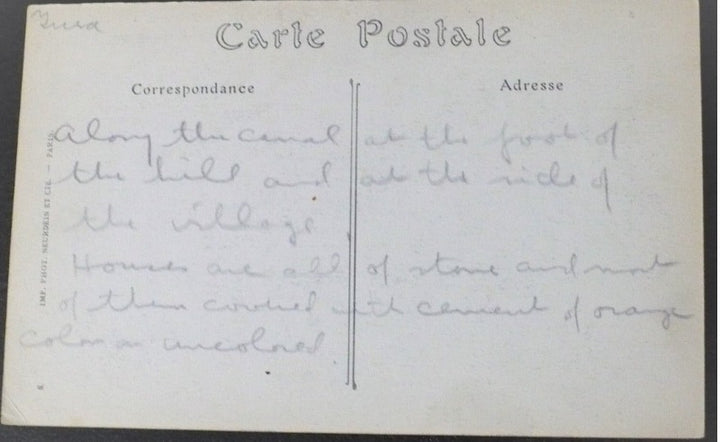 Carte Postale
Correspondance
Adresse
Along the canal at the foot of
the hill and at the side of
the village
Houses are all of stone and most
of them covered with cement of orange
color or uncolored.
IMP. PHOT. NEURDEIN ET CIE. — PARIS